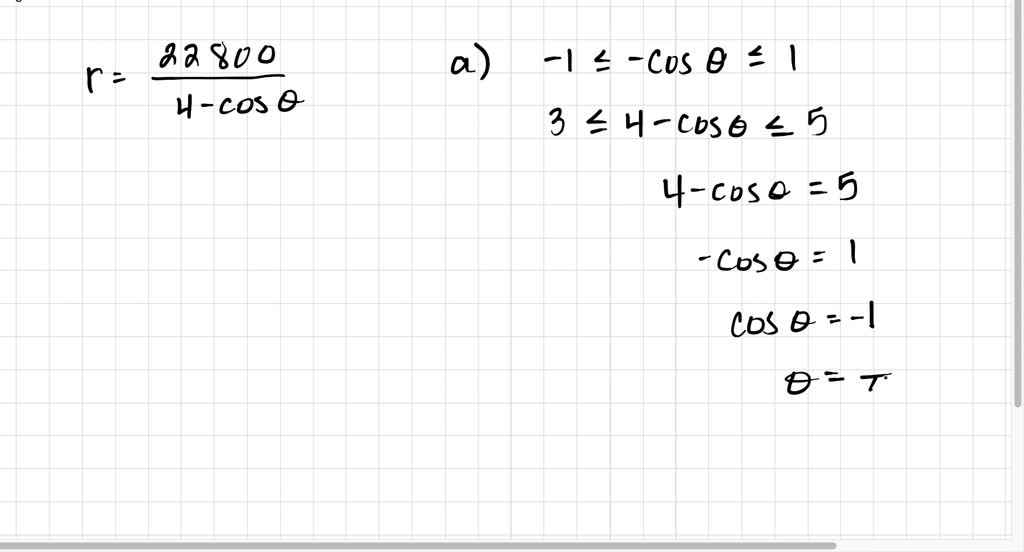 r = 22800 / 4 - cos θ
a) -1 ≤ -cos θ ≤ 1
3 ≤ 4 - cos θ ≤ 5
4 - cos θ = 5
-cos θ = 1
cos θ = -1
θ =